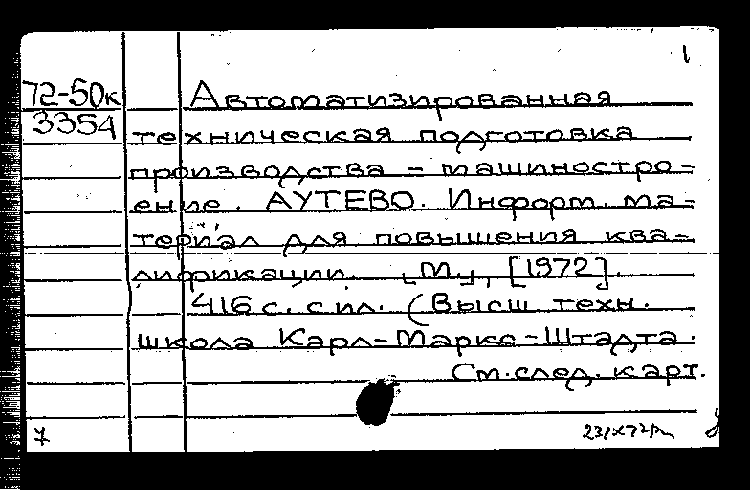 1
72-50к Автоматизированная
3354 техническая подготовка
производства – машиностро-
ение. АУТЕВО. Информ. ма-
териал для повышения ква-
лификации. [М.], [1972].
416 с. с ил. (Высш техн.
школа Карл-Маркс-Штадта.
См. след. карт.
7